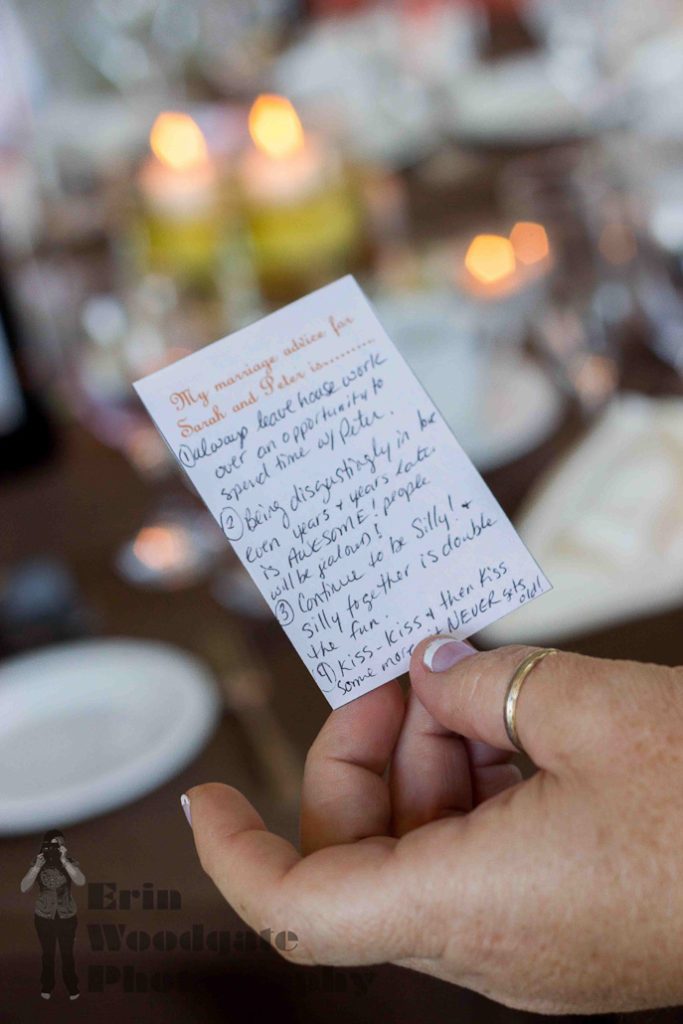 My marriage advice for
Sarah and Peter is..........
① always leave house work
over an opportunity to
spend time w/ Peter.
② Being disgustingly in love
even years + years later
is AWESOME! people
will be jealous!
③ Continue to be Silly! +
Silly together is double
the fun.
④ Kiss - Kiss + then Kiss
some more it NEVER gets
old!
Erin
Woodgate
Photography